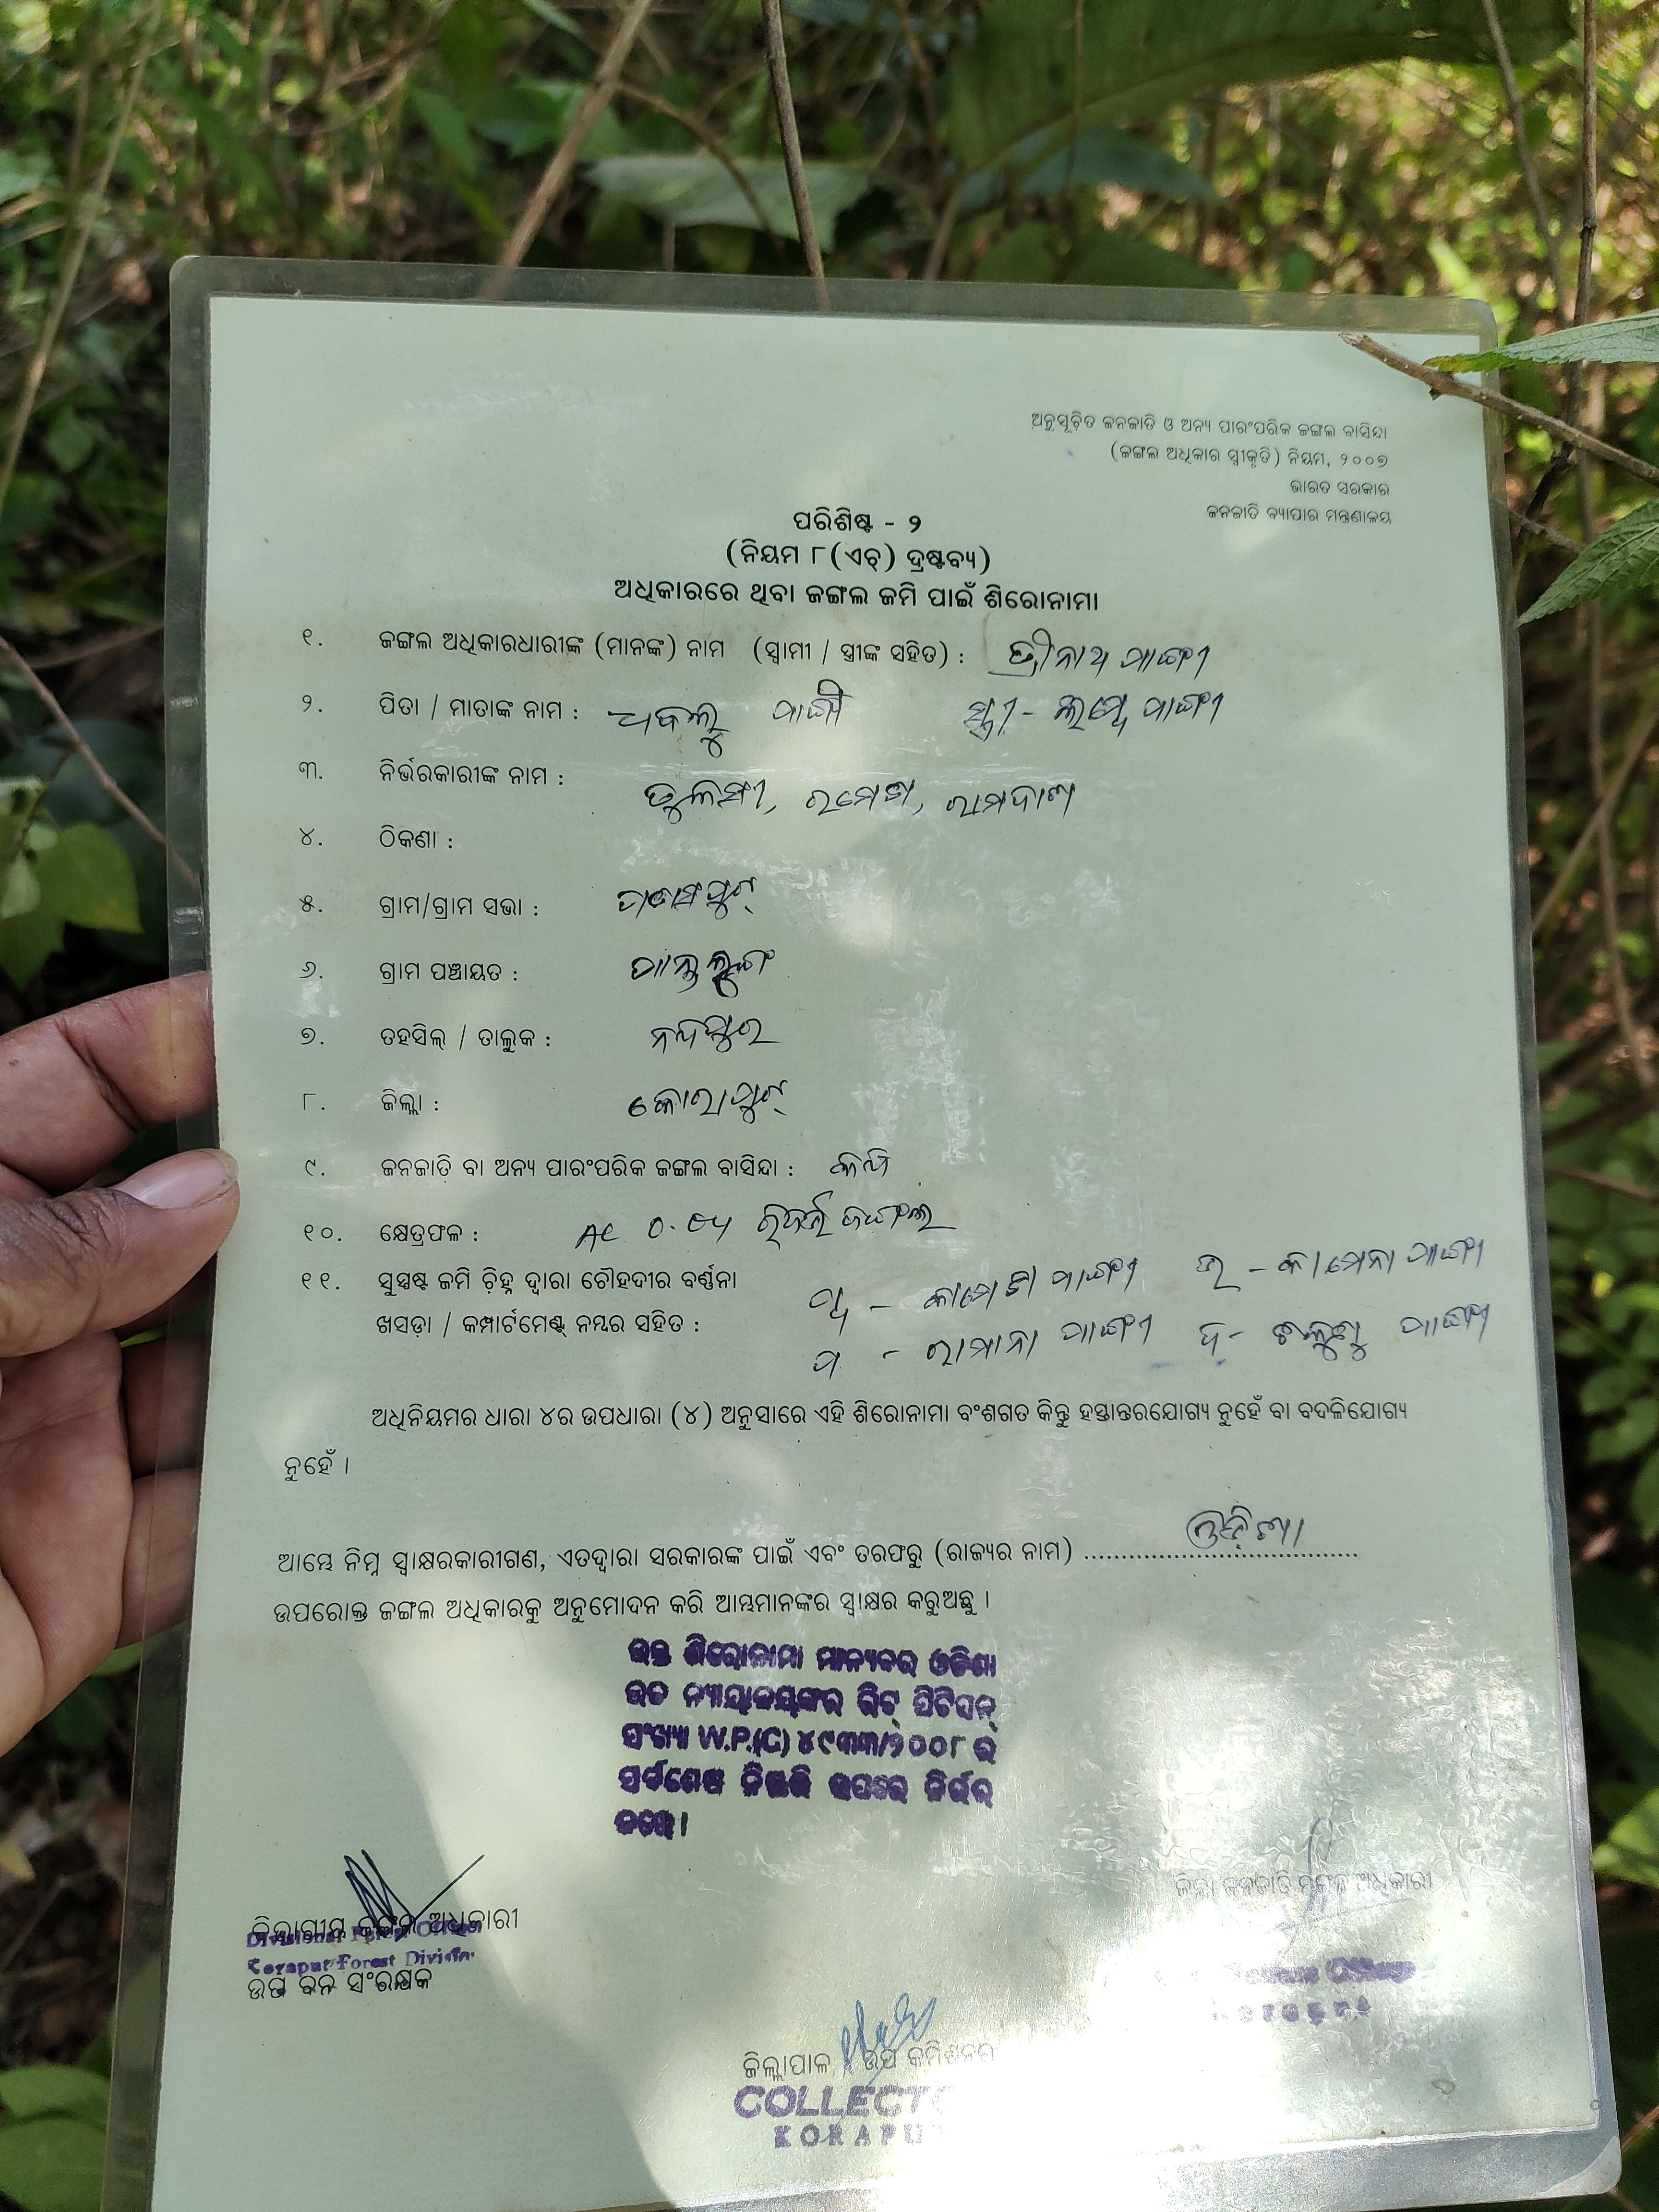 ଅନୁସୂଚିତ ଜନଜାତି ଓ ଅନ୍ୟ ପାରଂପରିକ ଜଙ୍ଗଲ ବାସିନ୍ଦା
(ଜଙ୍ଗଲ ଅଧିକାର ସ୍ୱୀକୃତି) ନିୟମ, ୨୦୦୭
ଭାରତ ସରକାର
ଜନଜାତି ବ୍ୟାପାର ମନ୍ତ୍ରଣାଳୟ
ପରିଶିଷ୍ଟ - ୨
(ନିୟମ ୮(ଏଚ୍) ଦ୍ରଷ୍ଟବ୍ୟ)
ଅଧିକାରରେ ଥିବା ଜଙ୍ଗଲ ଜମି ପାଇଁ ଶିରୋନାମା
୧. ଜଙ୍ଗଲ ଅଧିକାରଧାରୀଙ୍କ (ମାନଙ୍କ) ନାମ (ସ୍ୱାମୀ / ସ୍ତ୍ରୀଙ୍କ ସହିତ) : ପାଙ୍ଗୀ
୨. ପିତା / ମାତାଙ୍କ ନାମ : ପାଙ୍ଗୀ ସ୍ତ୍ରୀ - ପାଙ୍ଗୀ
୩. ନିର୍ଭରକାରୀଙ୍କ ନାମ : ତୁଳସୀ, ରମେଶ, ରାମଦାସ
୪. ଠିକଣା :
୫. ଗ୍ରାମ/ଗ୍ରାମ ସଭା :
୬. ଗ୍ରାମ ପଞ୍ଚାୟତ : ପାନ୍ତଲୁଙ୍ଗ
୭. ତହସିଲ୍ / ତାଲୁକ : ନନ୍ଦପୁର
୮. ଜିଲ୍ଲା : କୋରାପୁଟ୍
୯. ଜନଜାତି ବା ଅନ୍ୟ ପାରଂପରିକ ଜଙ୍ଗଲ ବାସିନ୍ଦା :
୧୦. କ୍ଷେତ୍ରଫଳ : AC ରିଜର୍ଭ ଜଙ୍ଗଲ
୧୧. ସୁସ୍ପଷ୍ଟ ଜମି ଚିହ୍ନ ଦ୍ୱାରା ଚୌହଦୀର ବର୍ଣ୍ଣନା ପାଙ୍ଗୀ ପାଙ୍ଗୀ
ଖସଡ଼ା / କମ୍ପାର୍ଟମେଣ୍ଟ୍ ନମ୍ବର ସହିତ : ପ - ପାଙ୍ଗୀ ଦ - ପାଙ୍ଗୀ
ଅଧିନିୟମର ଧାରା ୪ର ଉପଧାରା (୪) ଅନୁସାରେ ଏହି ଶିରୋନାମା ବଂଶଗତ କିନ୍ତୁ ହସ୍ତାନ୍ତରଯୋଗ୍ୟ ନୁହେଁ ବା ବଦଳିଯୋଗ୍ୟ
ନୁହେଁ ।
ଆମ୍ଭେ ନିମ୍ନ ସ୍ୱାକ୍ଷରକାରୀଗଣ, ଏତଦ୍ୱାରା ସରକାରଙ୍କ ପାଇଁ ଏବଂ ତରଫରୁ (ରାଜ୍ୟର ନାମ) ଓଡ଼ିଶା
ଉପରୋକ୍ତ ଜଙ୍ଗଲ ଅଧିକାରକୁ ଅନୁମୋଦନ କରି ଆମ୍ଭମାନଙ୍କର ସ୍ୱାକ୍ଷର କରୁଅଛୁ ।
ଉକ୍ତ ଶିରୋନାମା ମାନ୍ୟବର ଓଡିଶା
ଉଚ୍ଚ ନ୍ୟାୟାଳୟଙ୍କର ରିଟ୍ ପିଟିସନ୍
ସଂଖ୍ୟା W.P.(C) ୪୯୩୩/୨୦୦୮ ର
ସର୍ବଶେଷ ନିଷ୍ପତ୍ତି ଉପରେ ନିର୍ଭର
କରେ।
ଜିଲ୍ଲା ଜନଜାତି ମଙ୍ଗଳ ଅଧିକାରୀ
ବିଭାଗୀୟ ଜଙ୍ଗଲ ଅଧିକାରୀ
Divisional Forest Officer
Koraput Forest Division
ଉପ ବନ ସଂରକ୍ଷକ
Welfare Officer
ଜିଲ୍ଲାପାଳ / ଉପ କମିଶନର
COLLECTO
KORAPU